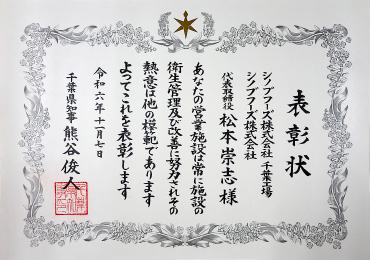 表彰状
シノブフーズ株式会社 千葉工場
シノブフーズ株式会社
代表取締役 松本崇志様
あなたの営業施設は常に施設の
衛生管理及び改善に努力されその
熱意は他の模範であります
よってこれを表彰します
令和六年十一月七日
千葉県知事 熊谷俊人